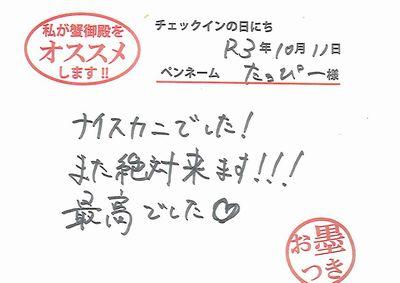 私が蟹御殿を
オススメ
します!!
チェックインの日にち
R3年10月11日
ペンネーム たっぴー様
ナイスカニでした!
また絶対来ます!!!
最高でした♡
お墨
つき